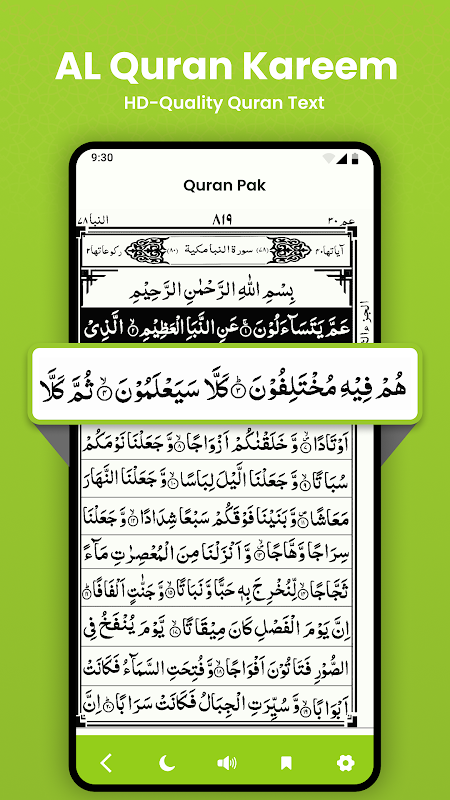 AL Quran Kareem
HD-Quality Quran Text
9:30
Quran Pak
عم ٣٠ ٨١٩ النبا ٧٨
اٰیاتها ٤٠ (٧٨) سورة النبا مكية (٨٠) ركوعاتها ٢
بِسْمِ اللّٰهِ الرَّحْمٰنِ الرَّحِیْمِ
عَمَّ یَتَسَآءَلُوْنَ ١ عَنِ النَّبَاِ الْعَظِیْمِ ٢ الَّذِیْ
هُمْ فِیْهِ مُخْتَلِفُوْنَ ٣ كَلَّا سَیَعْلَمُوْنَ ٤ ثُمَّ كَلَّا
اَوْتَادًا ٧ وَّ خَلَقْنٰكُمْ اَزْوَاجًا ٨ وَّ جَعَلْنَا نَوْمَكُمْ
سُبَاتًا ٩ وَّ جَعَلْنَا الَّیْلَ لِبَاسًا ١٠ وَّ جَعَلْنَا النَّهَارَ
مَعَاشًا ١١ وَّ بَنَیْنَا فَوْقَكُمْ سَبْعًا شِدَادًا ١٢ وَّ جَعَلْنَا
سِرَاجًا وَّهَّاجًا ١٣ وَّ اَنْزَلْنَا مِنَ الْمُعْصِرٰتِ مَآءً
ثَجَّاجًا ١٤ لِّنُخْرِجَ بِهٖ حَبًّا وَّ نَبَاتًا ١٥ وَّ جَنّٰتٍ اَلْفَافًا ١٦
اِنَّ یَوْمَ الْفَصْلِ كَانَ مِیْقَاتًا ١٧ یَّوْمَ یُنْفَخُ فِی
الصُّوْرِ فَتَاْتُوْنَ اَفْوَاجًا ١٨ وَّ فُتِحَتِ السَّمَآءُ فَكَانَتْ
اَبْوَابًا ١٩ وَّ سُیِّرَتِ الْجِبَالُ فَكَانَتْ سَرَابًا ٢٠ اِنَّ